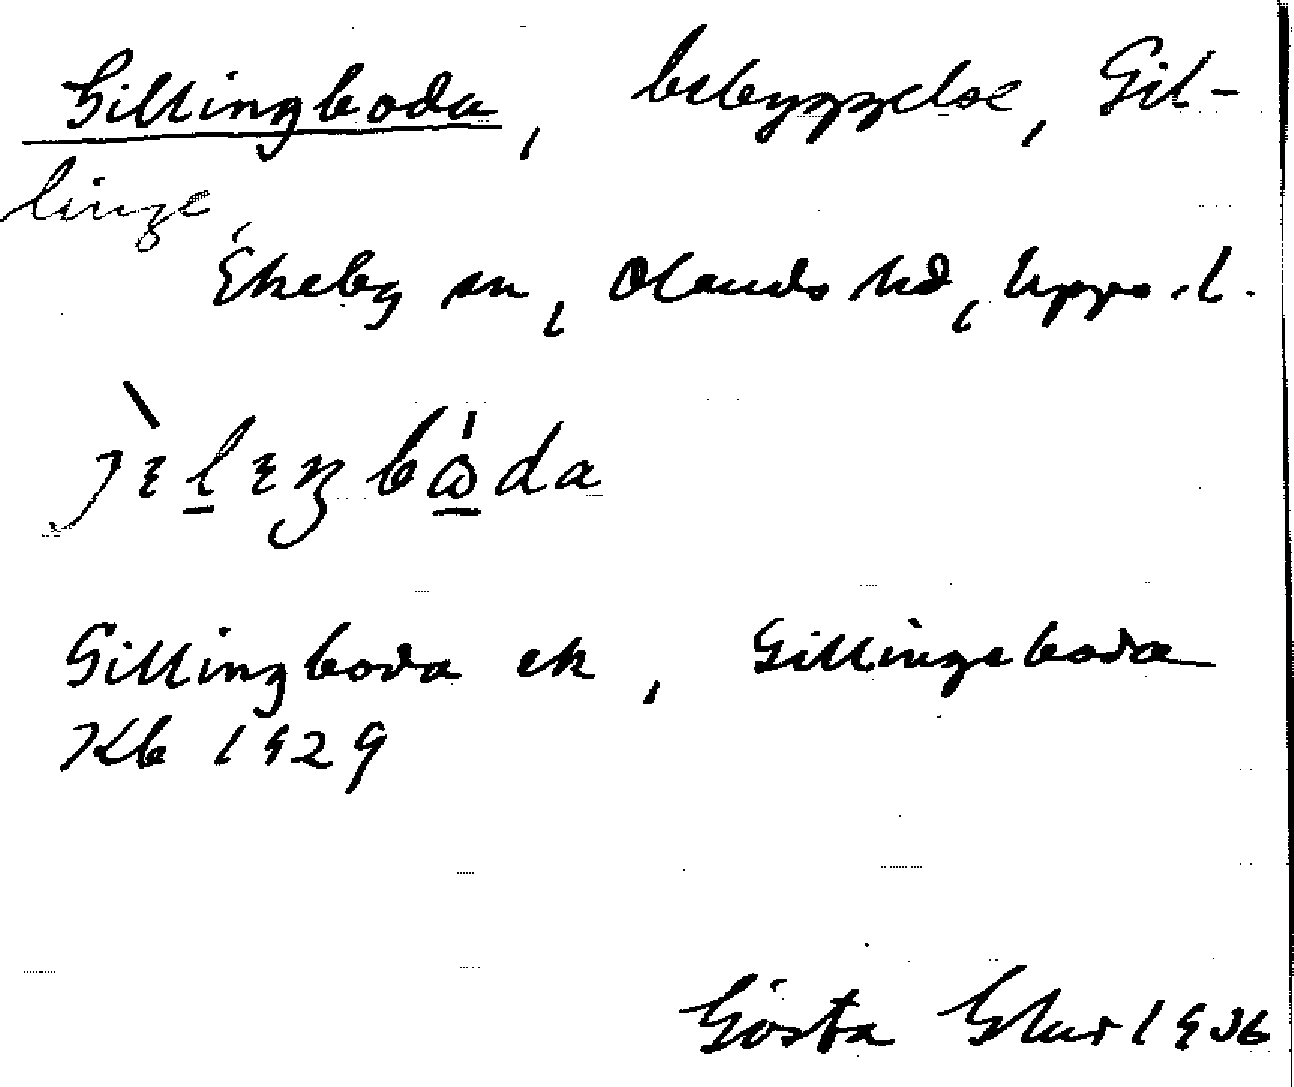 Gillingboda, bebyggelse, Gil-
linge,
Ekeby sn, Olands hd, Upps. l.
Gillingboda ek, Gillingeboda
Kb 1929
Gösta 1936